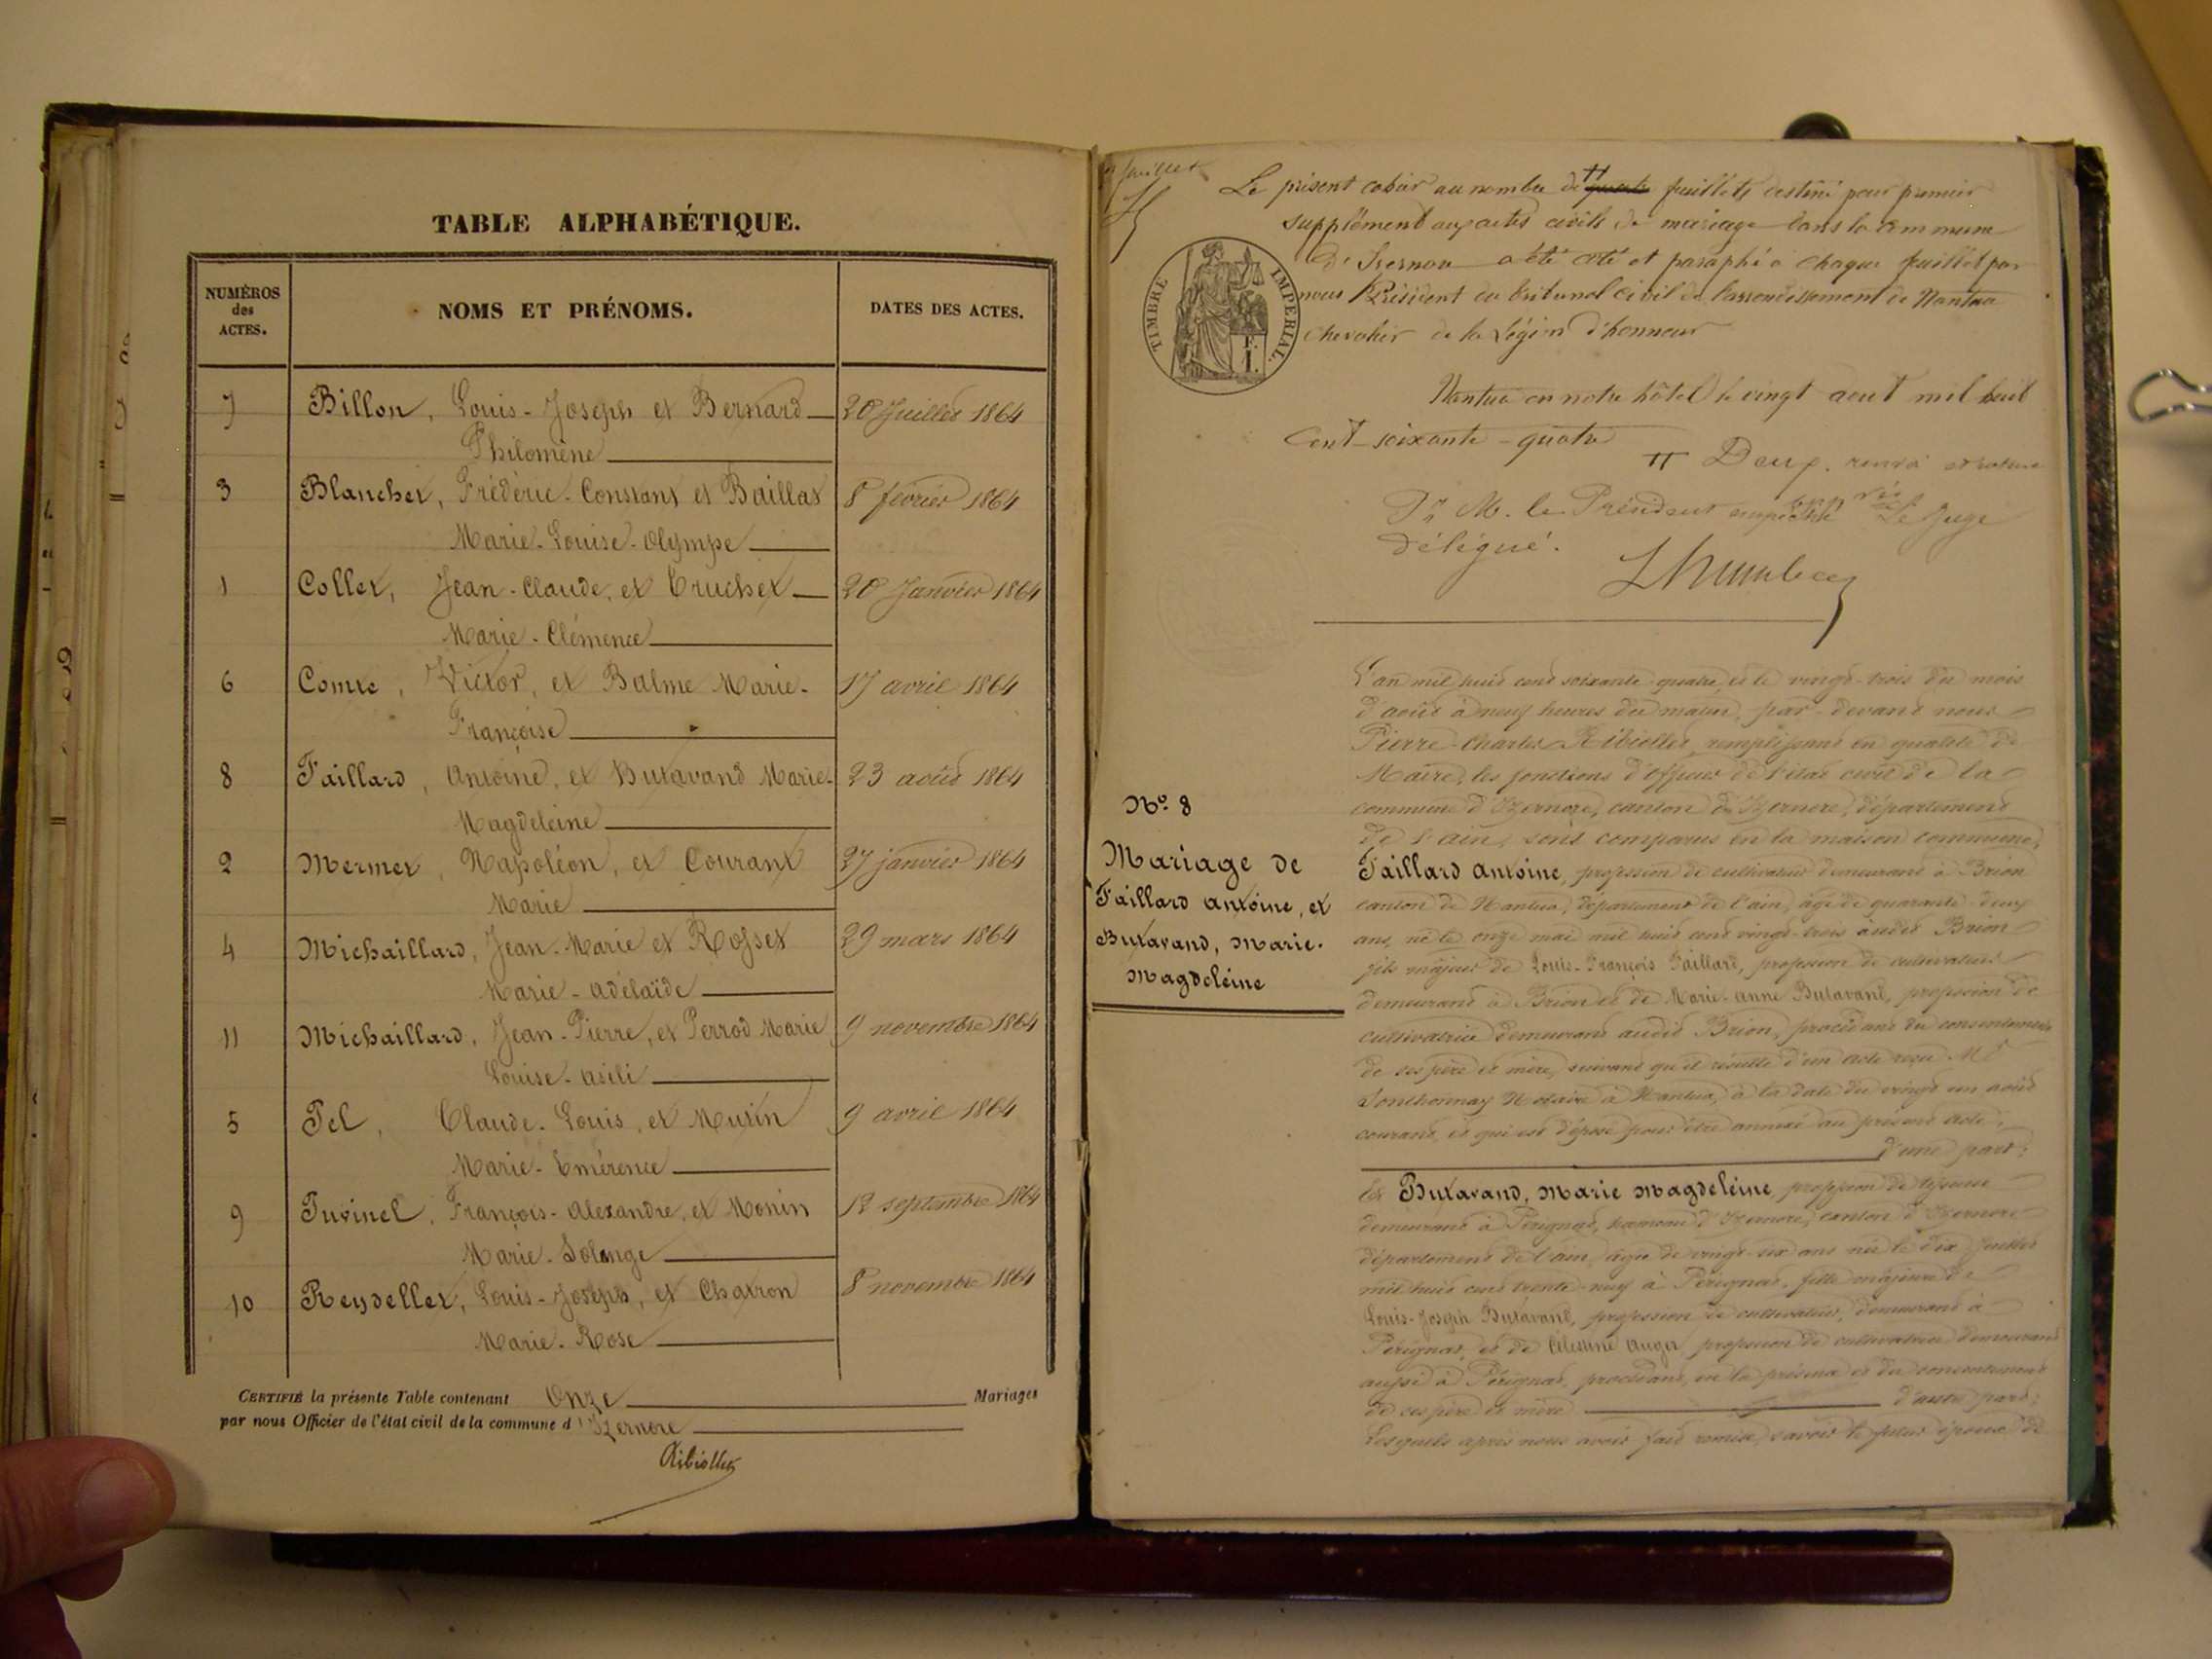 TABLE ALPHABÉTIQUE.
NUMÉROS
des
ACTES.
NOMS ET PRÉNOMS.
DATES DES ACTES.
7 Billon, Louis-Joseph et Bernard 20 Juillet 1864
Philomène
3 Blanchet, Frédéric-Constant et Baillat 8 février 1864
Marie-Louise-Olympe
1 Collet, Jean-Claude, et Truchet 20 Janvier 1864
Marie-Clémence
6 Comte, Victor, et Balme Marie- 17 avril 1864
Françoise
8 Faillard, Antoine, et Butavand Marie- 23 août 1864
Magdeleine
2 Mermet, Napoléon, et Courant 27 janvier 1864
Marie
4 Michaillard, Jean-Marie et Rosset 29 mars 1864
Marie-adélaïde
11 Michaillard, Jean-Pierre, et Perrod Marie 9 novembre 1864
Louise-asili
5 Pel, Claude-Louis, et Mutin 9 avril 1864
Marie-Emérence
9 Juvinel, François-Alexandre, et Monin 12 septembre 1864
Marie-Solange
10 Reydellet, Louis-Joseph, et Chatron 8 novembre 1864
Marie-Rose
CERTIFIÉ la présente Table contenant Onze Mariages
par nous Officier de l'état civil de la commune d'Izernore
Ribiollet
Le présent cahier au nombre de feuillets destiné pour premier
supplément aux actes civils de mariage dans la commune
d'Izernore a été coté et paraphé à chaque feuillet par
nous Président du tribunal civil de l'arrondissement de Nantua
Chevalier de la Légion d'honneur
TIMBRE IMPÉRIAL.
Nantua en notre hôtel le vingt aout mil huit
Cent-soixante-quatre
Deux. renvoi
Pr M. le Président empêché Le Juge
délégué.
L'an mil huit cent soixante quatre, et le vingt-trois du mois
d'août à neuf heures du matin, par-devant nous
Pierre-Charles Ribiollet, remplissant en qualité de
Maire, les fonctions d'officier de l'état civil de la
commune d'Izernore, canton d'Izernore, département
de l'ain, sont comparus en la maison commune,
No. 8
Mariage de
Faillard antoine, et
Butavand, Marie-
Magdeleine
Faillard antoine, profession de cultivateur demeurant à Brion
canton de Nantua, département de l'ain, âgé de quarante-deux
ans, né le onze mai mil huit cent vingt-trois audit Brion
fils majeur de Louis-François Faillard, profession de cultivateur
demeurant à Brion et de Marie-anne Butavand, profession de
cultivatrice demeurant audit Brion, procédant du consentement
de ses père et mère, suivant qu'il résulte d'un acte reçu Me
Sonthonnax Notaire à Nantua, à la date du vingt un août
courant, et qui est déposé pour être annexé au présent acte,
d'une part;
Et Butavand, Marie Magdeleine, profession de
demeurant à Pérignat, hameau d'Izernore, canton d'Izernore
département de l'ain, âgée de vingt-six ans née le dix juillet
mil huit cent trente-neuf à Pérignat, fille majeure de
Louis-Joseph Butavand, profession de cultivateur, demeurant à
Pérignat, et de Célestine Auger profession de cultivatrice demeurant
aussi à Pérignat, procédant en la présence et du consentement
de ses père et mère d'autre part;
Lesquels après nous avoir fait remise, savoir le futur époux de